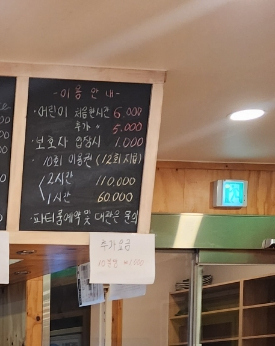 - 이 용 안 내 -
· 어린이 처음한시간 6.000
추가 〃 5.000
· 보호자 입장시 1.000
· 10회 이용권 (12회 지급)
2시간 110,000
1시간 60,000
· 파티룸예약 및 대관은 문의
추가요금